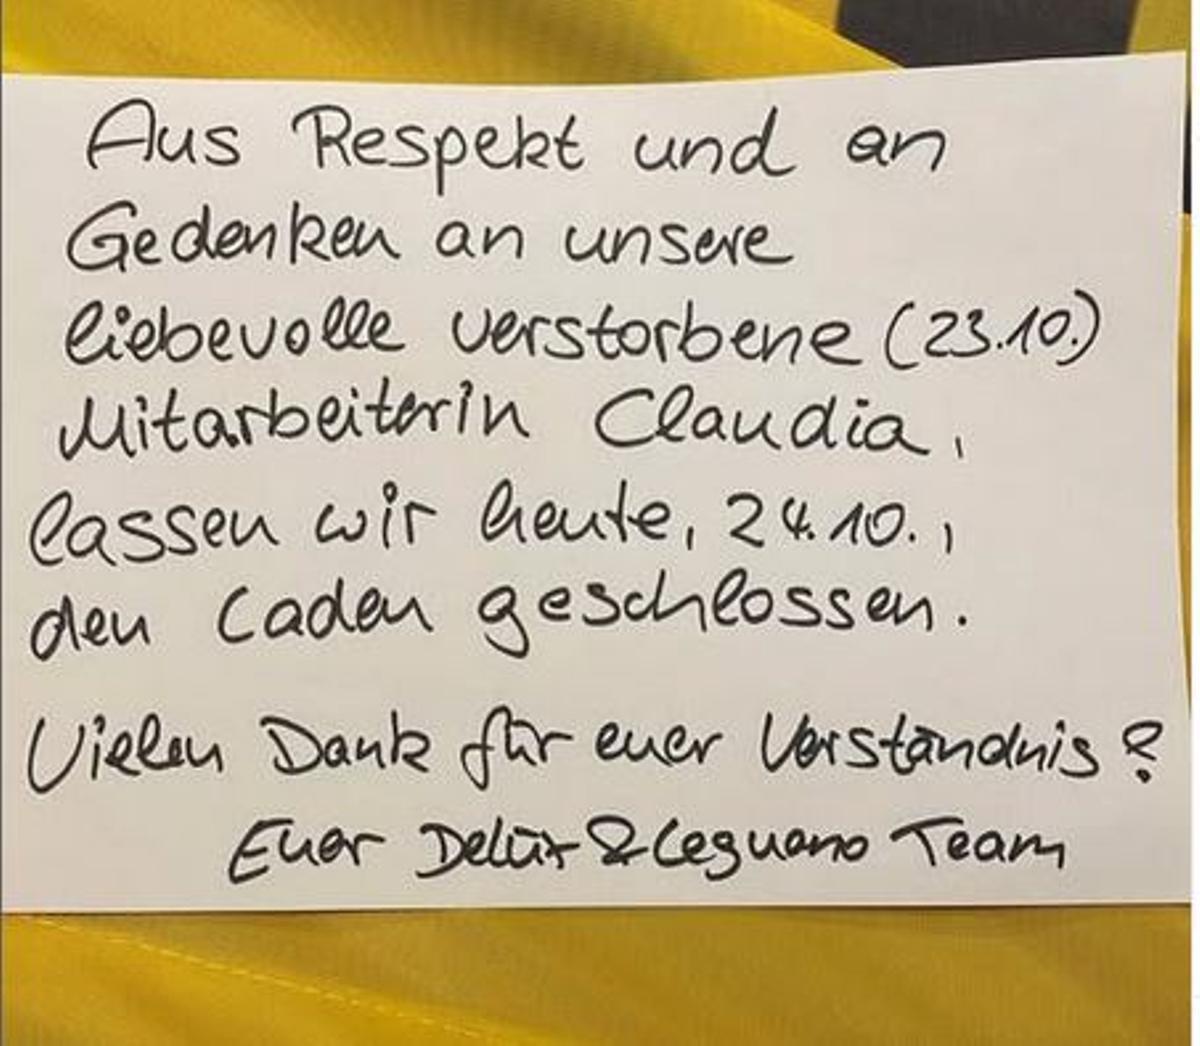 Aus Respekt und an
Gedenken an unsere
liebevolle verstorbene (23.10.)
Mitarbeiterin Claudia,
lassen wir heute, 24.10.,
den Laden geschlossen.
Vielen Dank für euer Verständnis?
Euer Delüx & Leguano Team